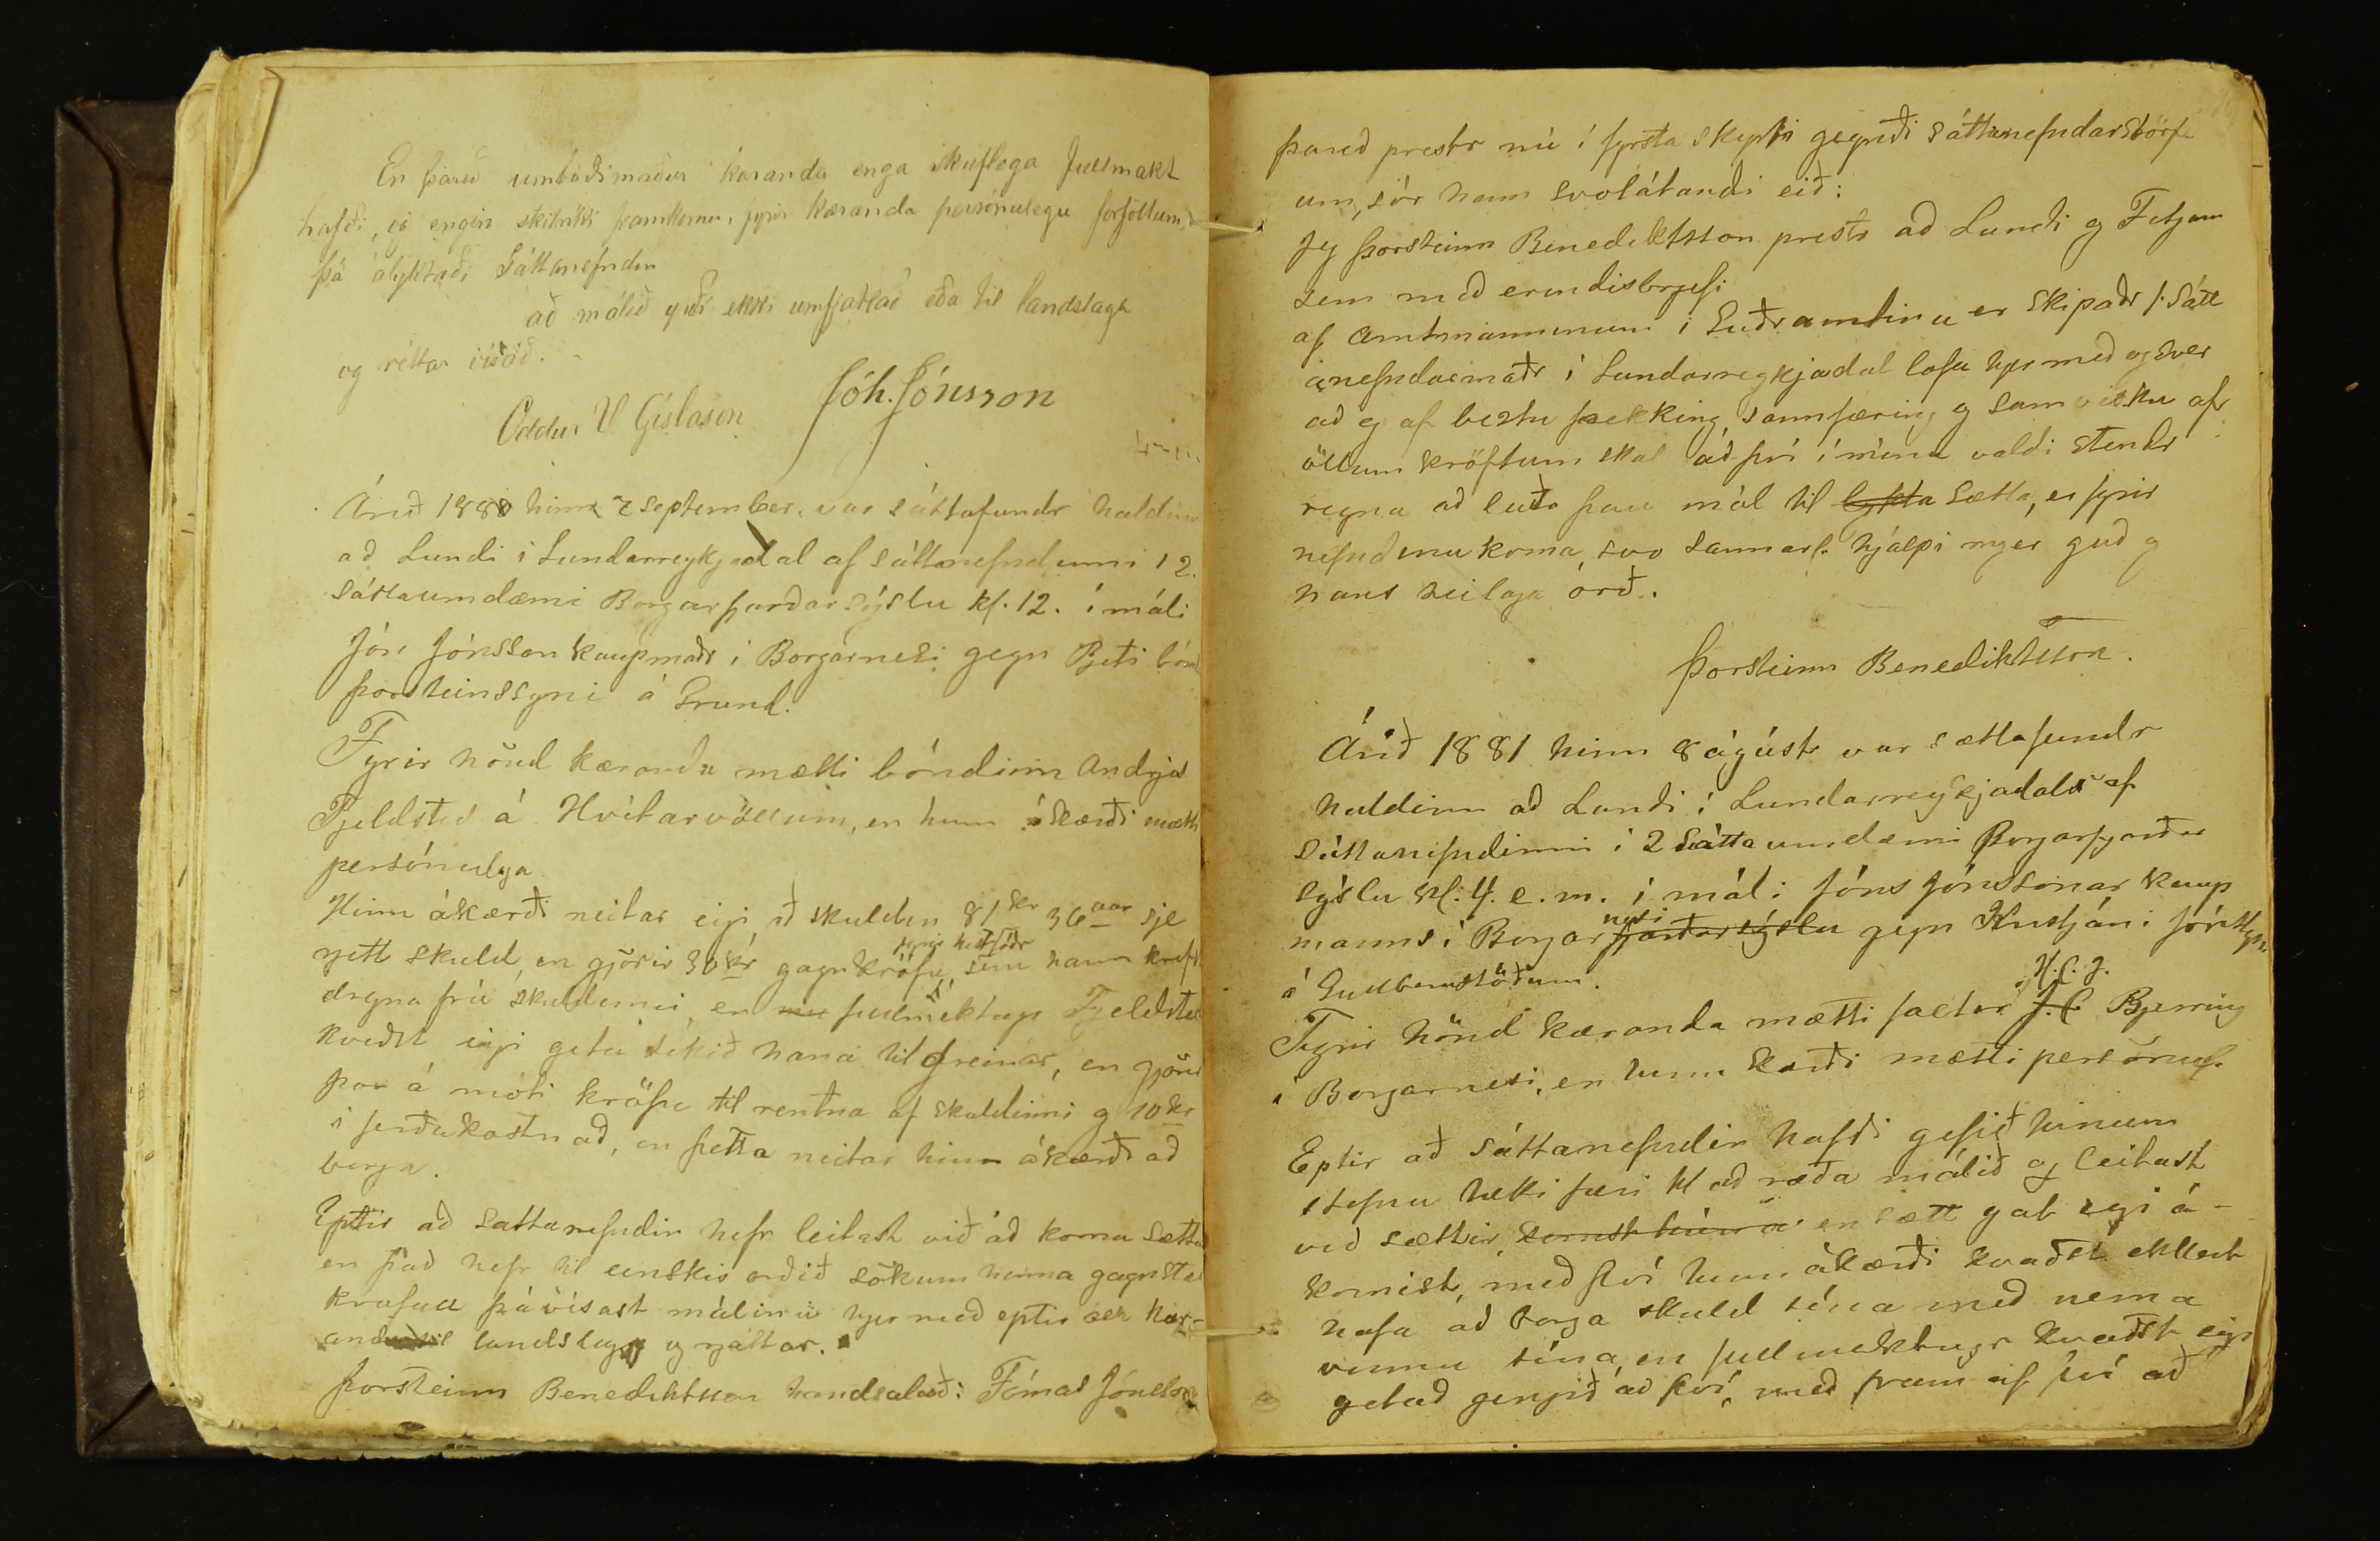 En þareð umboðsmaður kæranda enga skriflega fullmakt
hafði, og engin skilríki framkomu, fyrir kæranda persónulegu forföllum,
þá ályktaði Sáttanefndin
að málið yrði ekki umfjallað eða til landslaga
og réttar vísað.
Oddur V Gíslason Jóh. Jónsson
Árið 1880 hinn 7 september, var sáttafundr haldinn
að Lundi i Lundarreykjadal af sáttanefndinni i 2.
sáttaumdæmi Borgarfjarðarsýslu kl. 12. í máli
Jón Jónsson kaupmaðr i Borgarnesi gegn Pjetri bónd
Þorsteinssyni á Grund.
Fyrir hönd kæranda mætti bóndinn Andrjes
Fjeldsted á Hvítarvöllum, en hinn ákærði mætti
persónulega
Hinn ákærði neitar eigi að skulden 81 kr 36 aur sje
rjett skuld, en gjörir 30 kr gagnkröfu fyrir hestfóðr, sem hann krefst
dregna frá skuldinni, en fullmektugr Fjeldsted
kveðst eigi geta tekið hana til greinar, en gjörir
þar á móti kröfu til rentna af skuldinni og 10 kr
i ferðakostnað, en þetta neitar hinn ákærði að
borga.
Eptir að sattanefndin hefr leitast við að koma sættum
en það hefr til einskis orðið sökum hinna gagnstæ
krafna þá vísast málinu hjer með eptir ósk kær-
anda til landslaga og rjettar.
Þorsteinn Benediktsson handsalað: Tómas Jónsson
þareð prestr nú í fyrsta skypti gegndi sáttanefndarstörf
um, sór hann svolátandi eið:
Jeg Þorsteinn Benediktsson prestr að Lundi og Fitjum
sem með erindisbrjefi
af amtmanninum i Suðramtinu er skipaðr í Sátt
anefndarmaðr i Lundarreykjadal lofa hjer með og sver
að eg af beztu þekking, sannfæring og samvizku af
öllum kröftum skal að því í mínu valdi stendr
regna að leiða þau mál til lykta sætta, er fyrir
nefndina koma, svo sannarl. hjálpi mjer guð og
hans heilaga orð.
Þorsteinn Benediktsson.
Árið 1881 hinn 8 ágúst var sættafundr
haldinn að Lundi í Lundarreykjadal af
sáttanefndinni i 2 sáttaumdæmi Borgarfjarðar
sýslu kl. 4. e. m. í máli Jóns Jónssonar kaup
manns i Borgarfjarðarsýslu nesi gegn Kristjáni Jónssyni
á Gullberastöðum.
Fyrir hönd kæranda mætti factor J. C. H. C. J. Bjerring
í Borgarnesi, en hinn kærði mætti persónul.
Eptir að sáttanefndin hafði gefið hinum
stefnu tækifæri til að ræða málið og leitast
við sættir, en sætt gat eigi á-
komist, með því hinn ákærði kvaðst ekkert
hafa að borga skuld sína með nema
vinnu sína, en fullmektugr kvaðst eigi
getað gengið að því, með fram af því að